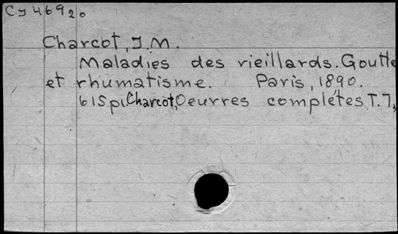 Charcot, J.M.
Maladies des vieillards. Goutte
et rhumatisme. Paris, 1890.
Charcot, Oeuvres complètes, T. 7,